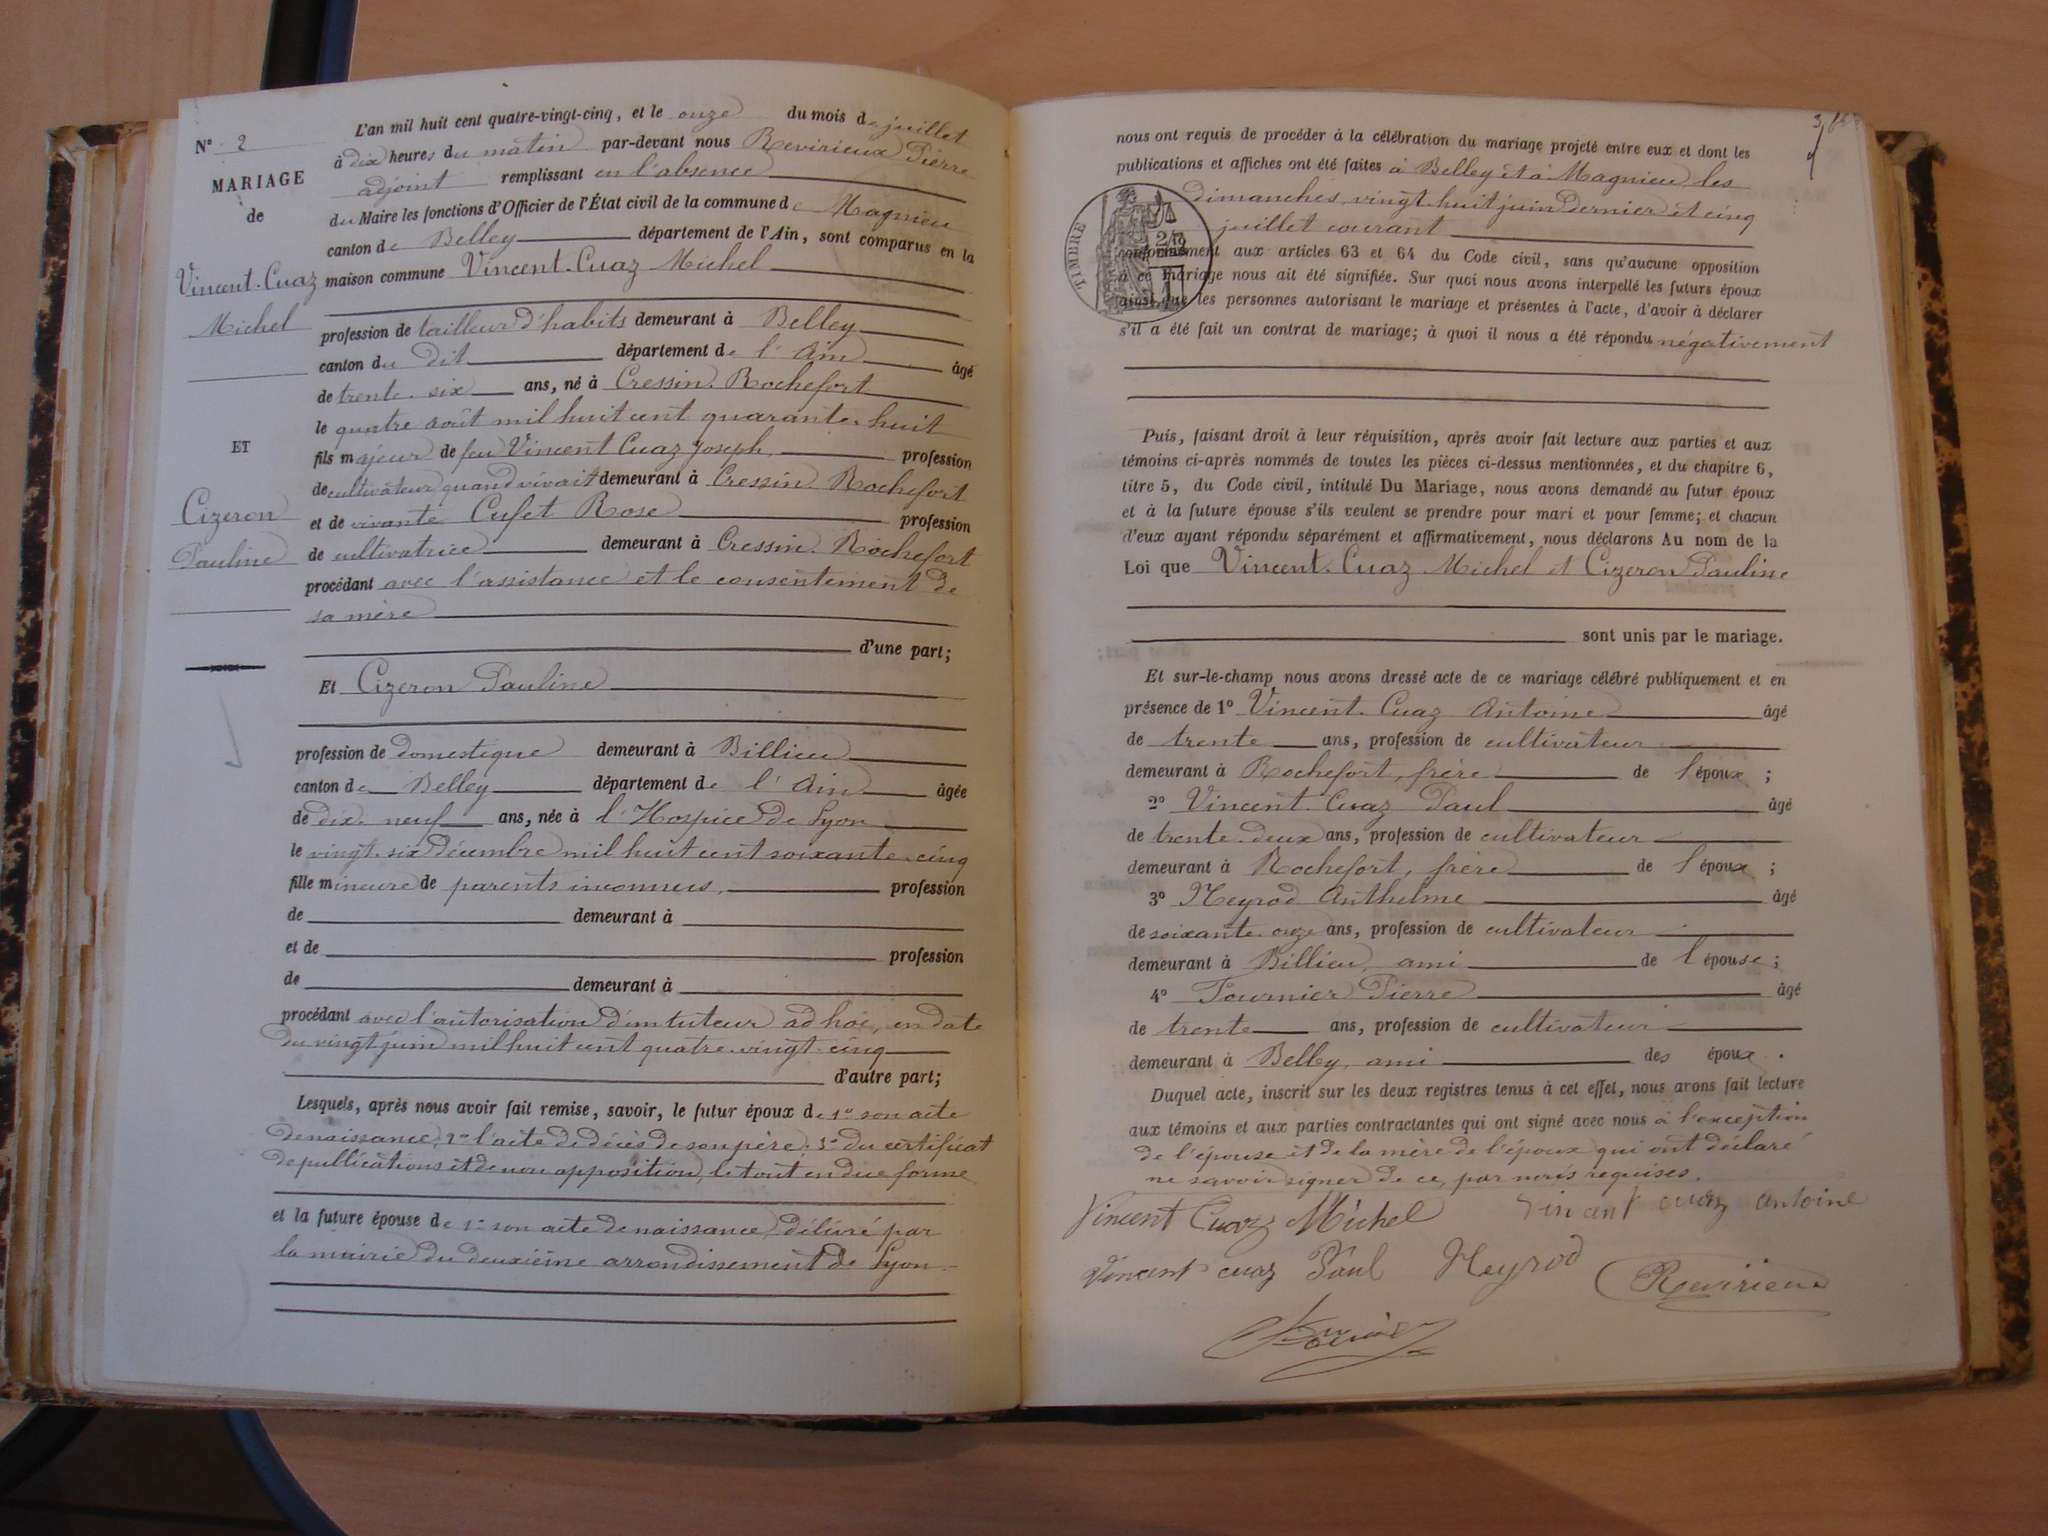 N° 2
MARIAGE
de
Vincent-Cuaz
Michel
ET
Cizeron
Pauline
L'an mil huit cent quatre-vingt-cinq, et le onze du mois de juillet
à dix heures du matin par-devant nous Revirieux Pierre
adjoint remplissant en l'absence
du Maire les fonctions d'Officier de l'État civil de la commune de Magnieu
canton de Belley département de l'Ain, sont comparus en la
maison commune Vincent-Cuaz Michel
profession de tailleur d'habits demeurant à Belley
canton du dit département de l'Ain âgé
de trente-six ans, né à Cressin-Rochefort
le quatre août mil huit cent quarante-huit
fils majeur de feu Vincent Cuaz Joseph, profession
de cultivateur quand vivait demeurant à Cressin Rochefort
et de vivante Cufet Rose profession
de cultivatrice demeurant à Cressin-Rochefort
procédant avec l'assistance et le consentement de
sa mère
d'une part;
Et Cizeron Pauline
profession de domestique demeurant à Billieu
canton de Belley département de l'Ain âgée
de dix-neuf ans, née à l'Hospice de Lyon
le vingt-six décembre mil huit cent soixante-cinq
fille mineure de parents inconnus, profession
de demeurant à
et de profession
de demeurant à
procédant avec l'autorisation d'un tuteur ad hoc, en date
du vingt juin mil huit cent quatre-vingt-cinq
d'autre part;
Lesquels, après nous avoir fait remise, savoir, le futur époux de 1° son acte
de naissance, 2° l'acte de décès de son père, 3° du certificat
de publications et de non opposition, le tout en due forme
et la future épouse de 1° son acte de naissance délivré par
la mairie du deuxième arrondissement de Lyon
nous ont requis de procéder à la célébration du mariage projeté entre eux et dont les
publications et affiches ont été faites à Belley et à Magnieu les
dimanches vingt-huit juin dernier et cinq
juillet courant
TIMBRE
conformément aux articles 63 et 64 du Code civil, sans qu'aucune opposition
à ce mariage nous ait été signifiée. Sur quoi nous avons interpellé les futurs époux
ainsi que les personnes autorisant le mariage et présentes à l'acte, d'avoir à déclarer
s'il a été fait un contrat de mariage; à quoi il nous a été répondu négativement
Puis, faisant droit à leur réquisition, après avoir fait lecture aux parties et aux
témoins ci-après nommés de toutes les pièces ci-dessus mentionnées, et du chapitre 6,
titre 5, du Code civil, intitulé Du Mariage, nous avons demandé au futur époux
et à la future épouse s'ils veulent se prendre pour mari et pour femme; et chacun
d'eux ayant répondu séparément et affirmativement, nous déclarons Au nom de la
Loi que Vincent-Cuaz Michel et Cizeron Pauline
sont unis par le mariage.
Et sur-le-champ nous avons dressé acte de ce mariage célébré publiquement et en
présence de 1° Vincent-Cuaz Antoine âgé
de trente ans, profession de cultivateur
demeurant à Rochefort, frère de l'époux;
2° Vincent-Cuaz Paul âgé
de trente-deux ans, profession de cultivateur
demeurant à Rochefort, frère de l'époux;
3° Neyrod Anthelme âgé
de soixante-onze ans, profession de cultivateur
demeurant à Billieu, ami de l'épouse;
4° Fournier Pierre âgé
de trente ans, profession de cultivateur
demeurant à Belley, ami des époux.
Duquel acte, inscrit sur les deux registres tenus à cet effet, nous avons fait lecture
aux témoins et aux parties contractantes qui ont signé avec nous à l'exception
de l'épouse et de la mère de l'époux qui ont déclaré
ne savoir signer de ce, par nous requises.
Vincent Cuaz Michel Vincent cuaz antoine
Vincent cuaz Paul Neyrod Revirieux